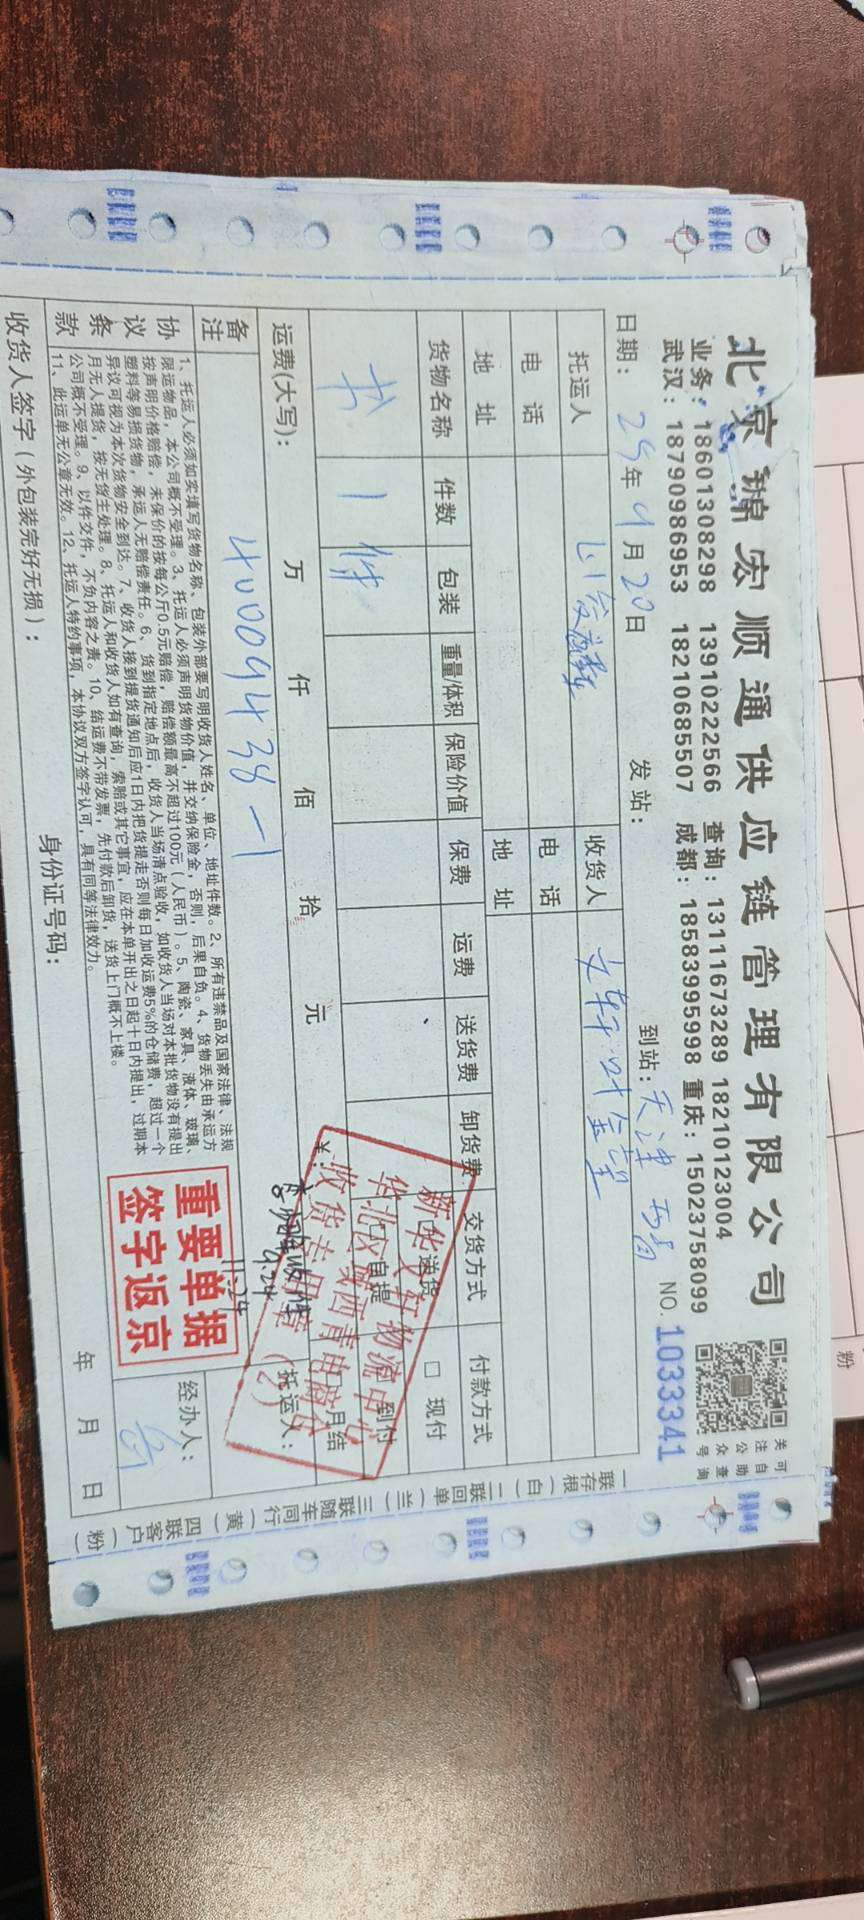 北京锦宏顺通供应链管理有限公司
关注公众号
可自助查询
业务：18601308298 13910222566 查询：13111673289 18210123004
武汉：18790986953 18210685507 成都：18583995998 重庆：15023758099
日期：25年9月20日 发站： 到站：天津 NO.1033341
托运人 收货人 文轩叶金望
电话 电话
地址 地址
货物名称 件数 包装 重量/体积 保险价值 保费 运费 送货费 卸货费 交货方式 付款方式
书 1件 送货 □现付
自提 到付
月结
运费(大写)： 万 仟 佰 拾 元 ￥： (托运人：
新华文轩物流中心
华北区域西青电商仓
收货专用章
(2)
备注 40009438-1
11.24
9.24
协议条款
1、托运人必须如实填写货物名称、包装外部要写明收货人姓名、单位、地址件数。2、所有违禁品及国家法律、法规
限运物品，本公司概不受理。3、托运人必须声明货物价值，并交纳保险金，否则，后果自负。4、货物丢失由承运方
按声明价格赔偿，未保价的按每公斤0.5元赔偿，赔偿额最高不超过100元（人民币）。5、陶瓷、家具、液体、玻璃、
塑料等易损货物，承运人无赔偿责任。6、货到指定地点后，收货人当场清点验收，如收货人当场对本批货物没有提出
异议可视为本次货物安全到达。7、收货人接到提货通知后应1日内把货提走否则每日加收运费5%的仓储费，超过一个
月无人提货，按无货主处理。8、托运人和收货人如有查询，索赔或其它事宜，应在本单开出之日起十日内提出，过期本
公司概不受理。9、以件交件，不负内容之责。10、结运费不带发票，先付款后卸货，送货上门概不上楼。
11、此运单无公章无效。12、托运人特约事项，本协议双方签字认可，具有同等法律效力。
重要单据
签字返京
经办人：
收货人签字（外包装完好无损）： 身份证号码： 年 月 日
一联存根（白）二联回单（兰）三联随车同行（黄）四联客户（粉）
粉